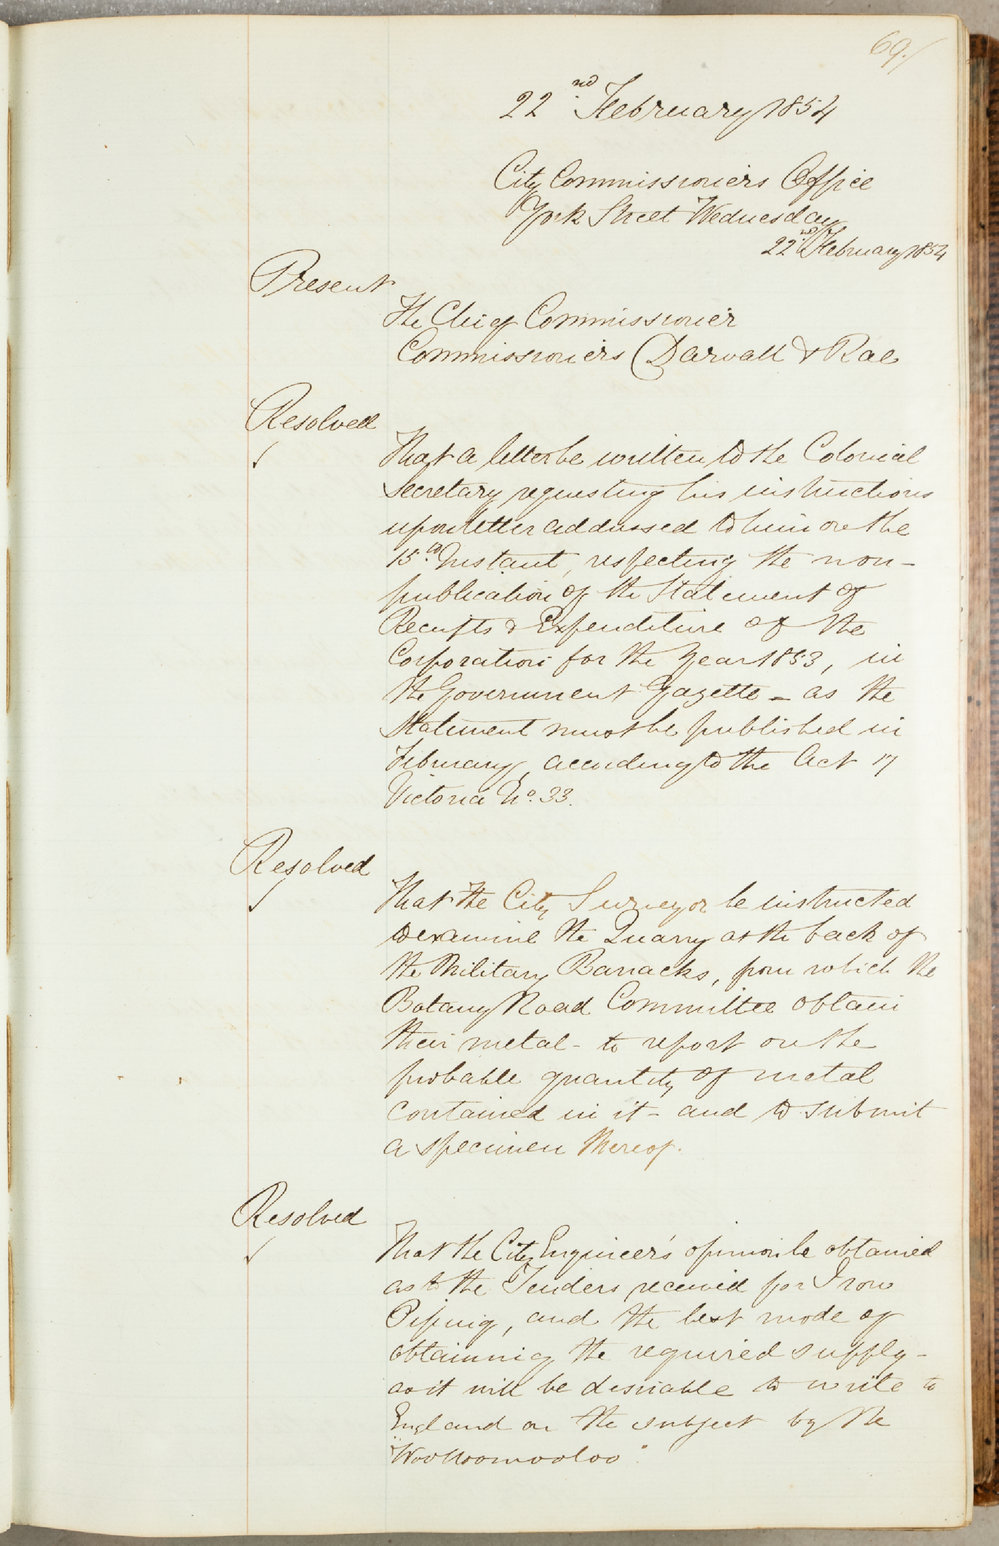 69./
22nd February 1854
City Commissioners Office
York Street Wednesday
22nd February 1854
Present
The Chief Commissioner
Commissioners Darvall & Rae
Resolved
That a letter be written to the Colonial
Secretary requesting his instructions
upon letter addressed to him on the
15th Instant, respecting the non-
publication of the Statement of
Receipts & Expenditure of the
Corporation for the Year 1853, in
the Government Gazette – as the
Statement must be published in
February, according to the Act 17
Victoria No. 33.
Resolved
That the City Surveyor be instructed
to examine the Quarry at the back of
the Military Barracks, from which the
Botany Road Committee obtain
their metal – to report on the
probable quantity of metal
contained in it – and to submit
a specimen thereof.
Resolved
That the City Engineer's opinion be obtained
as to the Tenders received for Iron
Piping, and the best mode of
obtainning the required supply –
as it will be desirable to write to
England on the subject by the
"Woolloomooloo".